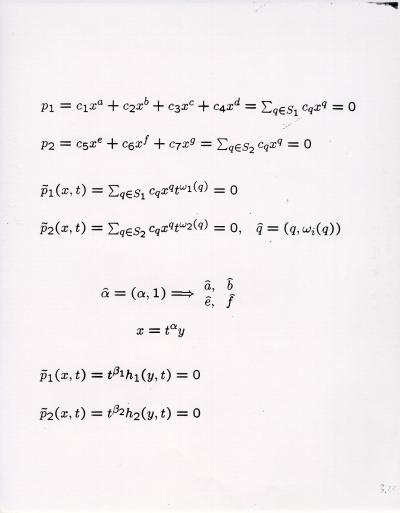 p₁ = c₁xᵃ + c₂xᵇ + c₃xᶜ + c₄xᵈ = ∑_{q∈S₁} c_q x^q = 0
p₂ = c₅xᵉ + c₆xᶠ + c₇xᵍ = ∑_{q∈S₂} c_q x^q = 0
p̃₁(x, t) = ∑_{q∈S₁} c_q x^q t^{ω₁(q)} = 0
p̃₂(x, t) = ∑_{q∈S₂} c_q x^q t^{ω₂(q)} = 0, q̂ = (q, ωᵢ(q))
α̂ = (α, 1) ⟹ â, b̂
ê, f̂
x = t^α y
p̃₁(x, t) = t^{β₁} h₁(y, t) = 0
p̃₂(x, t) = t^{β₂} h₂(y, t) = 0